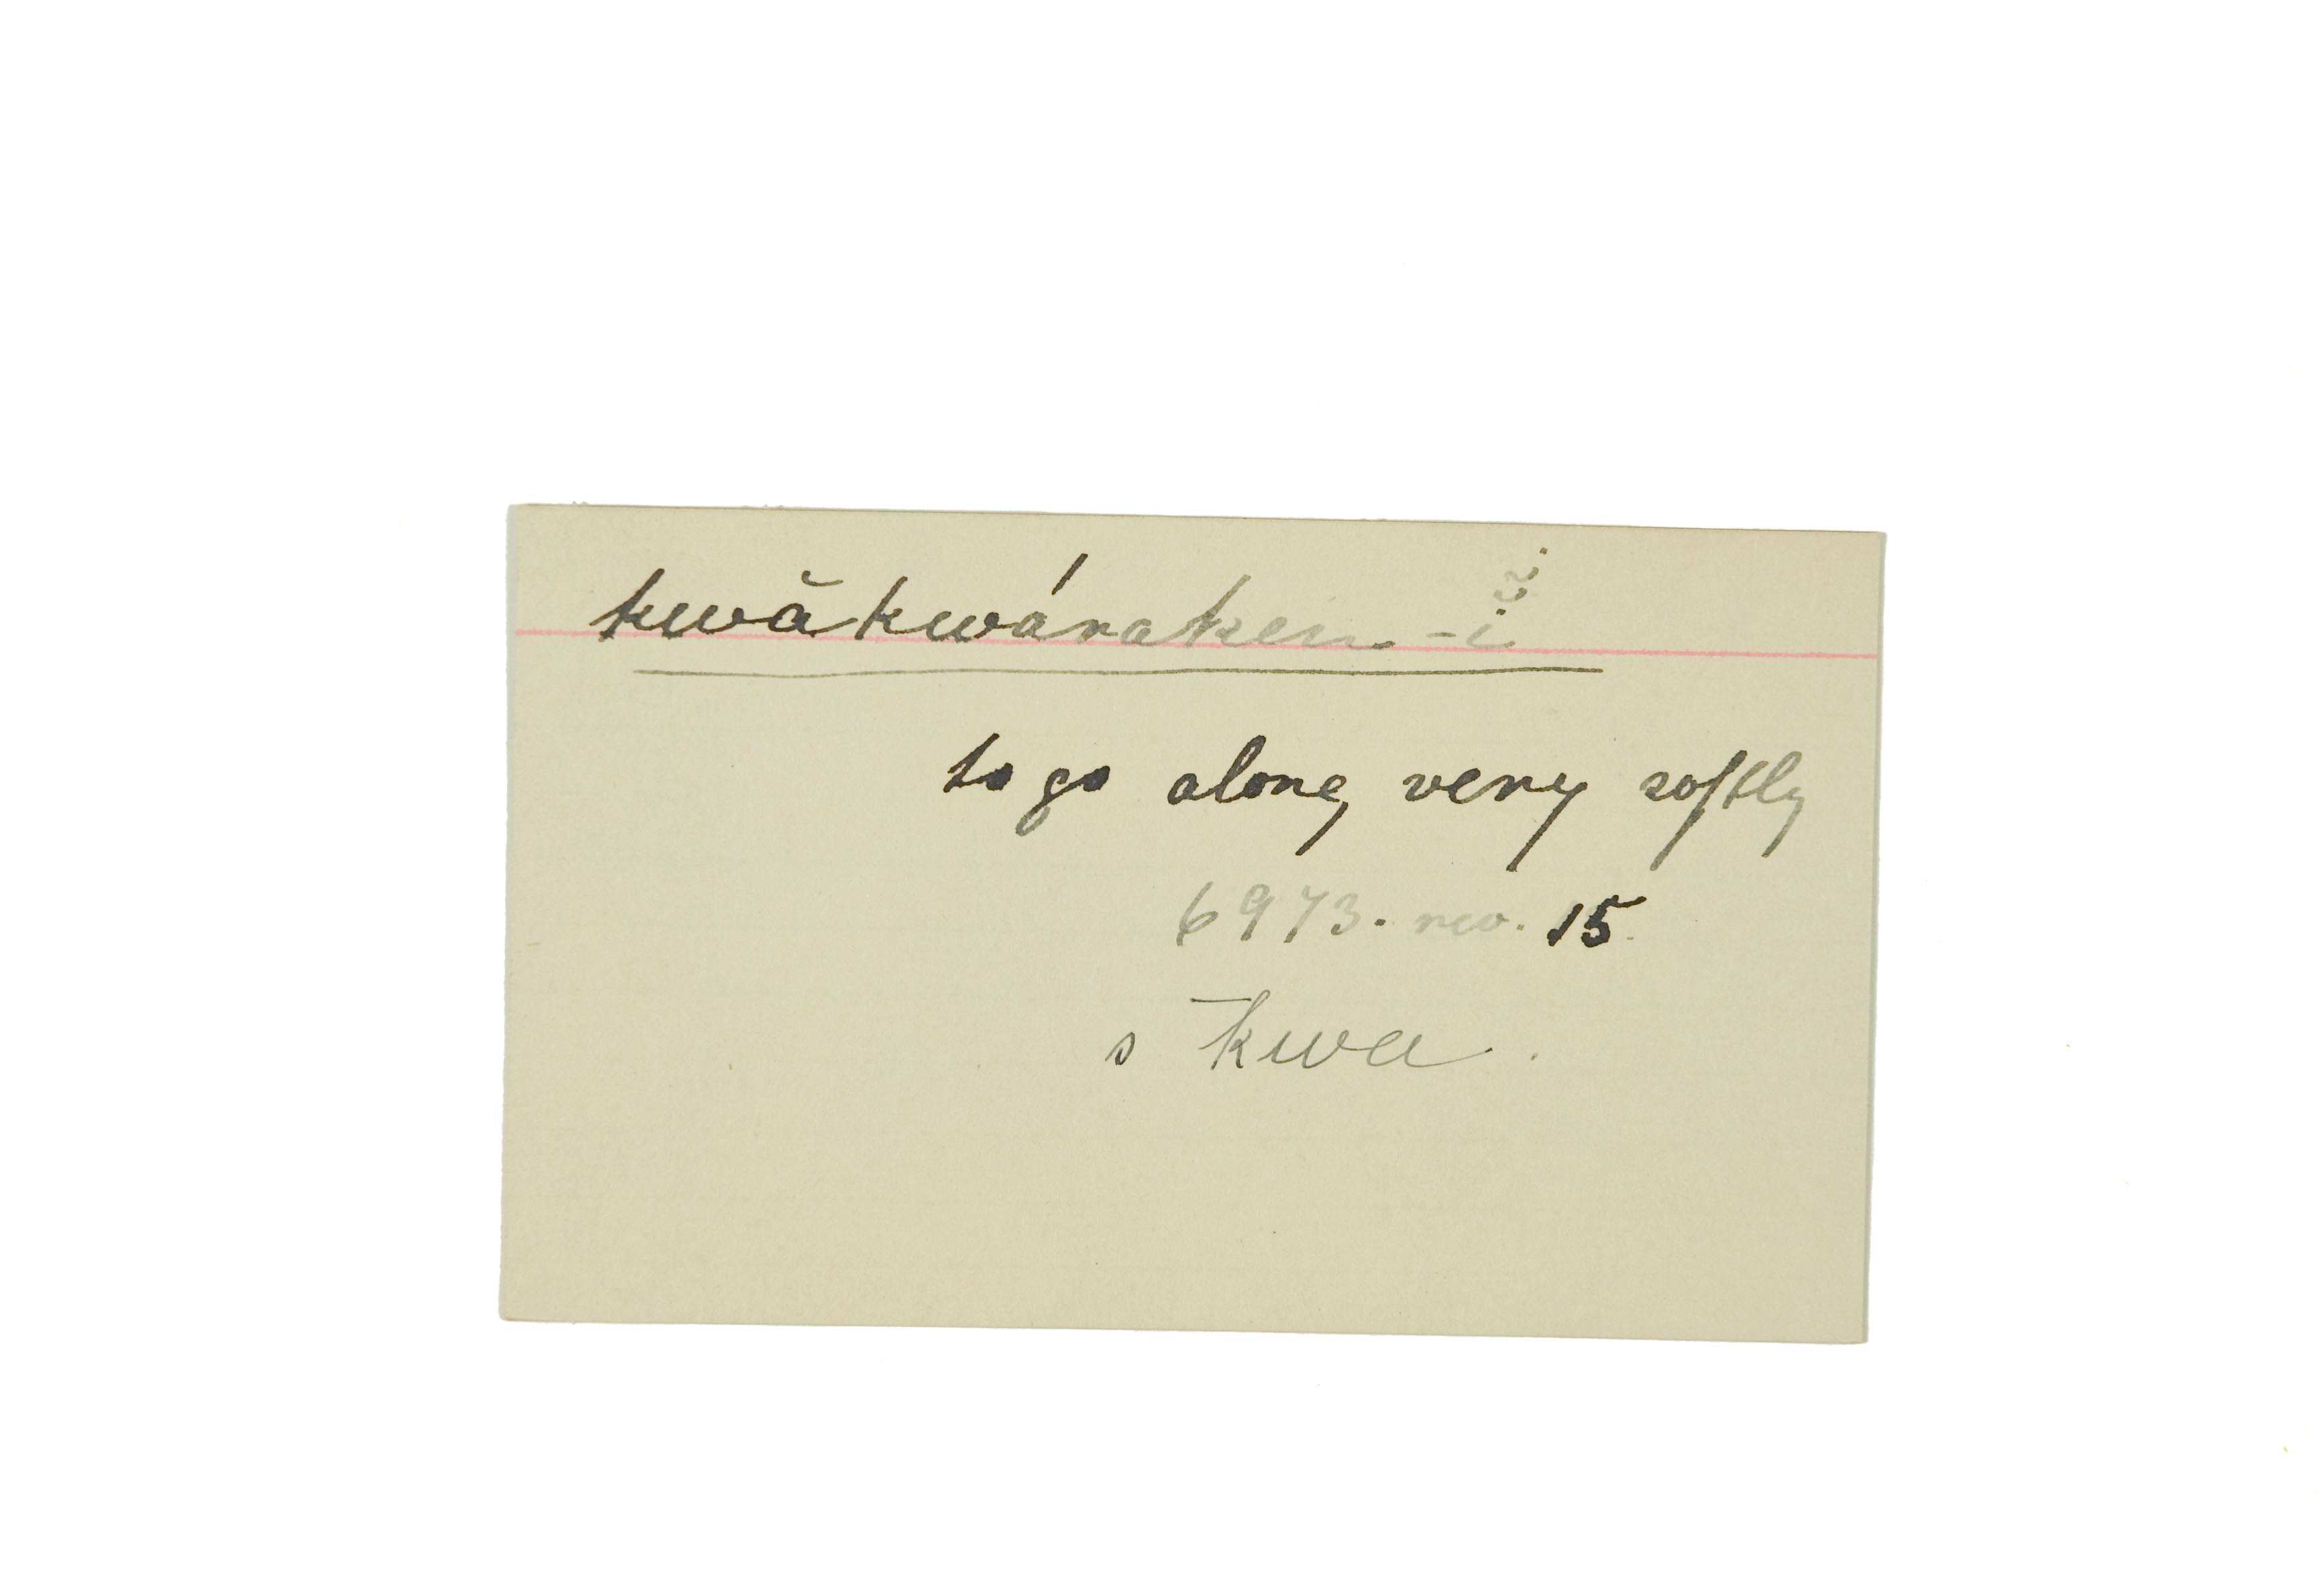 kwăkwáraken-ĭ
to go along very softly
6973. rev. 15
s k̄wa.